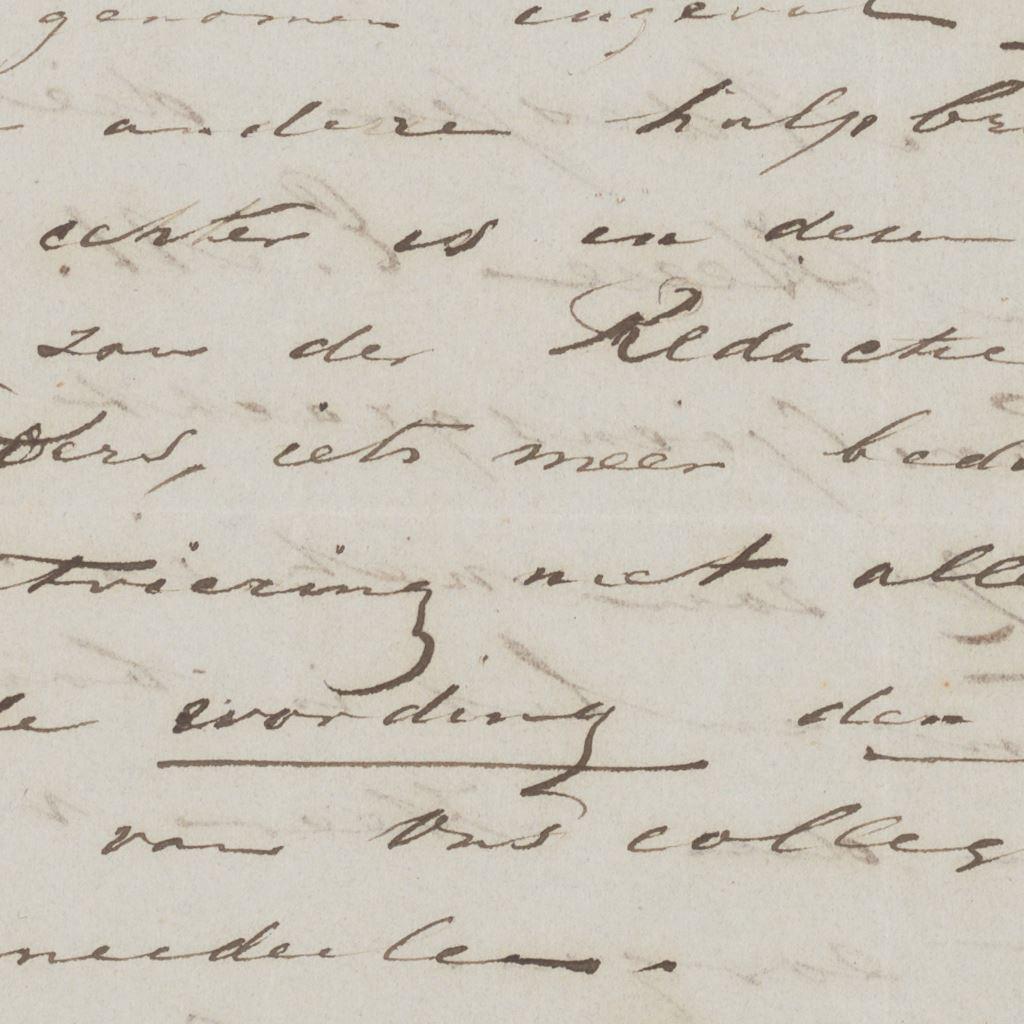 genomen ingeval
andere hulpbe
echter is in dezen
zou de Redactie
iets meer bedu
tviering met alle
de wording den
van Ons colleg
meedeelen.